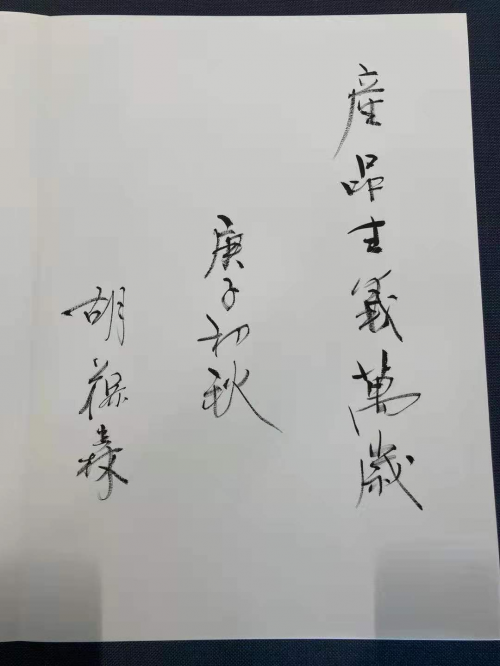 產品主義萬歲
庚子初秋
胡葆森